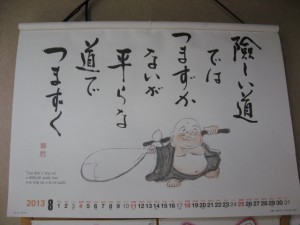 険しい道
では
つまずか
ないが
平らな
道で
つまずく
You don't trip on
a difficult path, but
you trip on a flat path
2013 8 1 2 3 4 5 6 7 8 9 10 11 12 13 14 15 16 17 18 19 20 21 22 23 24 25 26 27 28 29 30 31